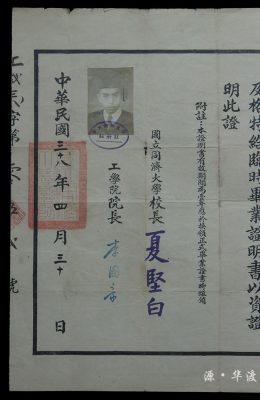 及格特給臨時畢業證明書以資證
明此證
附註：本證明書有效期間為壹年應於換領正式畢業證書時繳銷
國立同濟大學校長
夏堅白
工學院院長
李國豪
中華民國三十八年四月三十日
字第
號
源·华渡